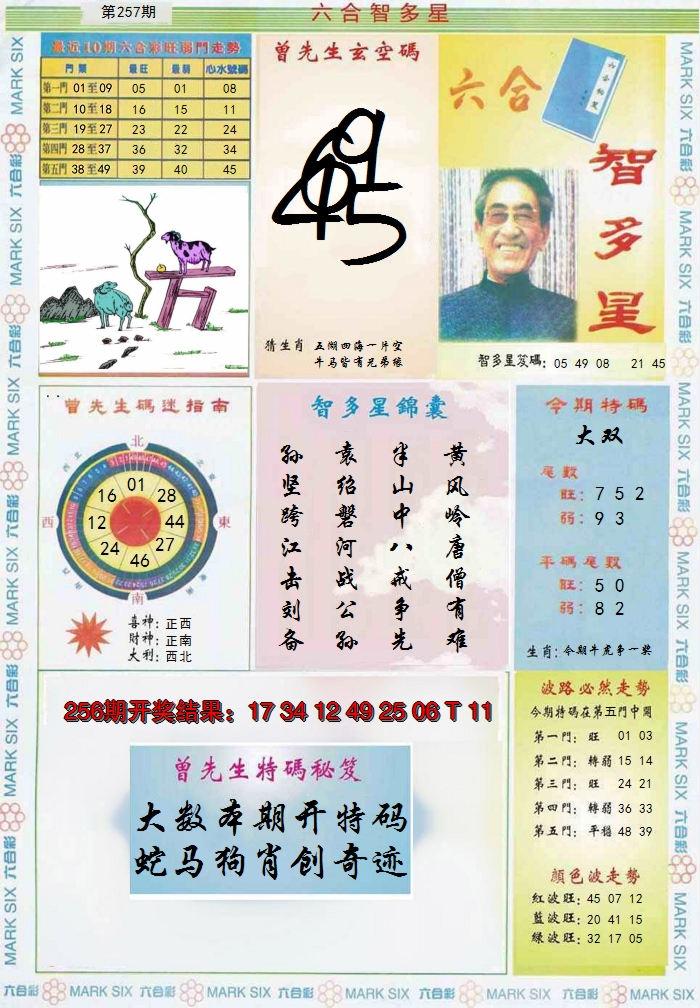 第257期
六合智多星
最近10期六合彩旺弱門走勢
門類 最旺 最弱 心水號碼
第一門 01至09 05 01 08
第二門 10至18 16 15 11
第三門 19至27 23 22 24
第四門 28至37 36 32 34
第五門 38至49 39 40 45
曾先生玄空碼
猜生肖 五湖四海一片空
牛马皆有兄弟缘
六合
智多星
智多星笈碼: 05 49 08 21 45
曾先生碼迷指南
北
西
東
南
01
28
44
27
46
24
12
16
喜神: 正西
財神: 正南
大利: 西北
智多星錦囊
黄风岭唐僧有难
半山中八戒争先
袁绍磐河战公孙
孙坚跨江击刘备
今期特碼
大双
尾數
旺: 7 5 2
弱: 9 3
平碼尾數
旺: 5 0
弱: 8 2
生肖: 今期牛虎争一奖
256期开奖结果: 17 34 12 49 25 06 T 11
曾先生特碼秘笈
大数本期开特码
蛇马狗肖创奇迹
波路必然走勢
今期特碼在第五門中開
第一門: 旺 01 03
第二門: 轉弱 15 14
第三門: 旺 24 21
第四門: 轉弱 36 33
第五門: 平穩 48 39
顏色波走勢
紅波旺: 45 07 12
藍波旺: 20 41 15
綠波旺: 32 17 05
六合彩 MARK SIX